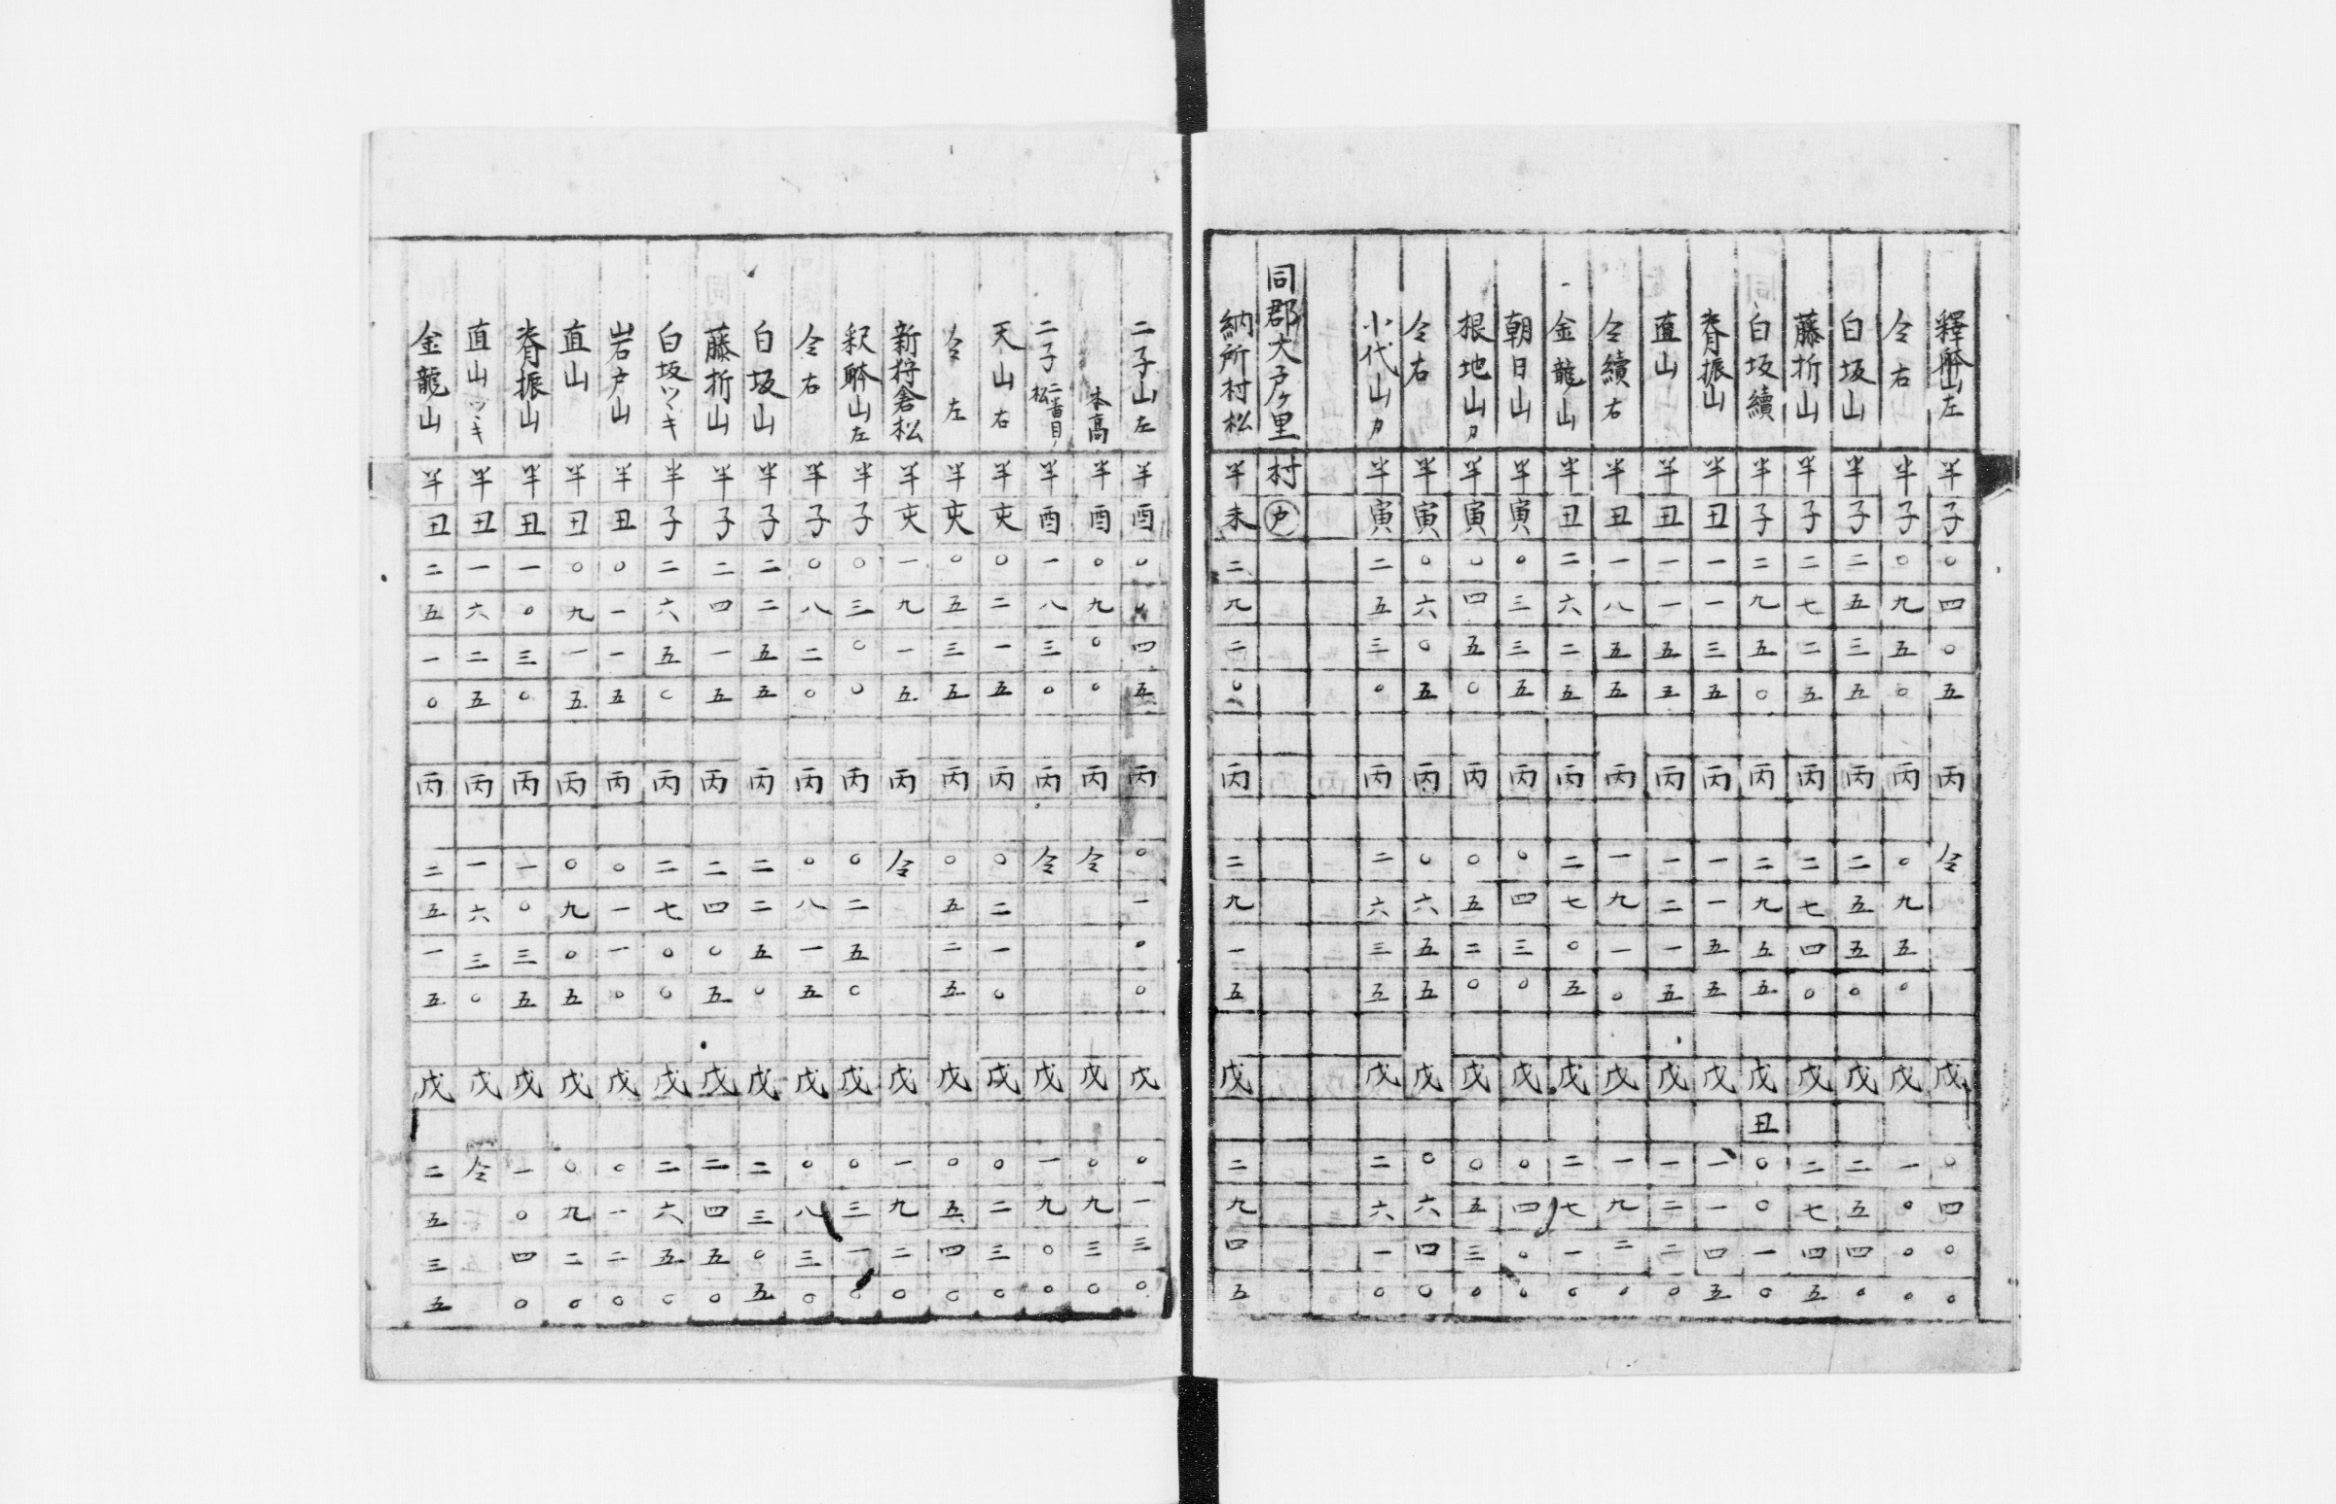 釋酔山左 半子〇四〇五 丙 仝 戊 〇四〇〇
仝右 半子〇九五〇 丙 〇九五〇 戊 一〇〇〇
白坂山 半子二五三五 丙 二五五〇 戊 二五四〇
藤折山 半子二七二五 丙 二七四〇 戊 二七四五
白坂續 半子二九五〇 丙 二九五五 戊丑〇〇一〇
脊振山 半丑一一三五 丙 一一五五 戊 一一四五
直山 半丑一一五五 丙 一二一五 戊 一二二〇
仝續右 半丑一八五五 丙 一九一〇 戊 一九二〇
金龍山 半丑二六二五 丙 二七〇五 戊 二七一〇
朝日山 半寅〇三三五 丙 〇四三〇 戊 〇四〇〇
根地山カ 半寅〇四五〇 丙 〇五二〇 戊 〇五三〇
仝右 半寅〇六〇五 丙 〇六五五 戊 〇六四〇
小代山カ 半寅二五三〇 丙 二六三五 戊 二六一〇
同郡大戸ヶ里村㊋
納所村松 半未二九二〇 丙 二九一五 戊 二九四五
二子山左 半酉〇〇四五 丙 〇一〇〇 戊 〇一三〇
本高 半酉〇九〇〇 丙 仝 戊 〇九三〇
二子二番目ノ松 半酉一八三〇 丙 仝 戊 一九〇〇
天山右 半亥〇二一五 丙 〇二一〇 戊 〇二三〇
仝左 半亥〇五三五 丙 〇五二五 戊 〇五四〇
新狩倉松 半亥一九一五 丙 仝 戊 一九二〇
釈酔山左 半子〇三〇〇 丙 〇二五〇 戊 〇三一〇
仝右 半子〇八二〇 丙 〇八一五 戊 〇八三〇
白坂山 半子二二五五 丙 二二五〇 戊 二三〇五
藤折山 半子二四一五 丙 二四〇五 戊 二四五〇
白坂ツヽキ 半子二六五〇 丙 二七〇〇 戊 二六五〇
岩戸山 半丑〇一一五 丙 〇一一〇 戊 〇一二〇
直山 半丑〇九一五 丙 〇九〇五 戊 〇九二〇
脊振山 半丑一〇三〇 丙 一〇三五 戊 一〇四〇
直山ツヽキ 半丑一六二五 丙 一六三〇 戊 仝
金龍山 半丑二五一〇 丙 二五一五 戊 二五三五